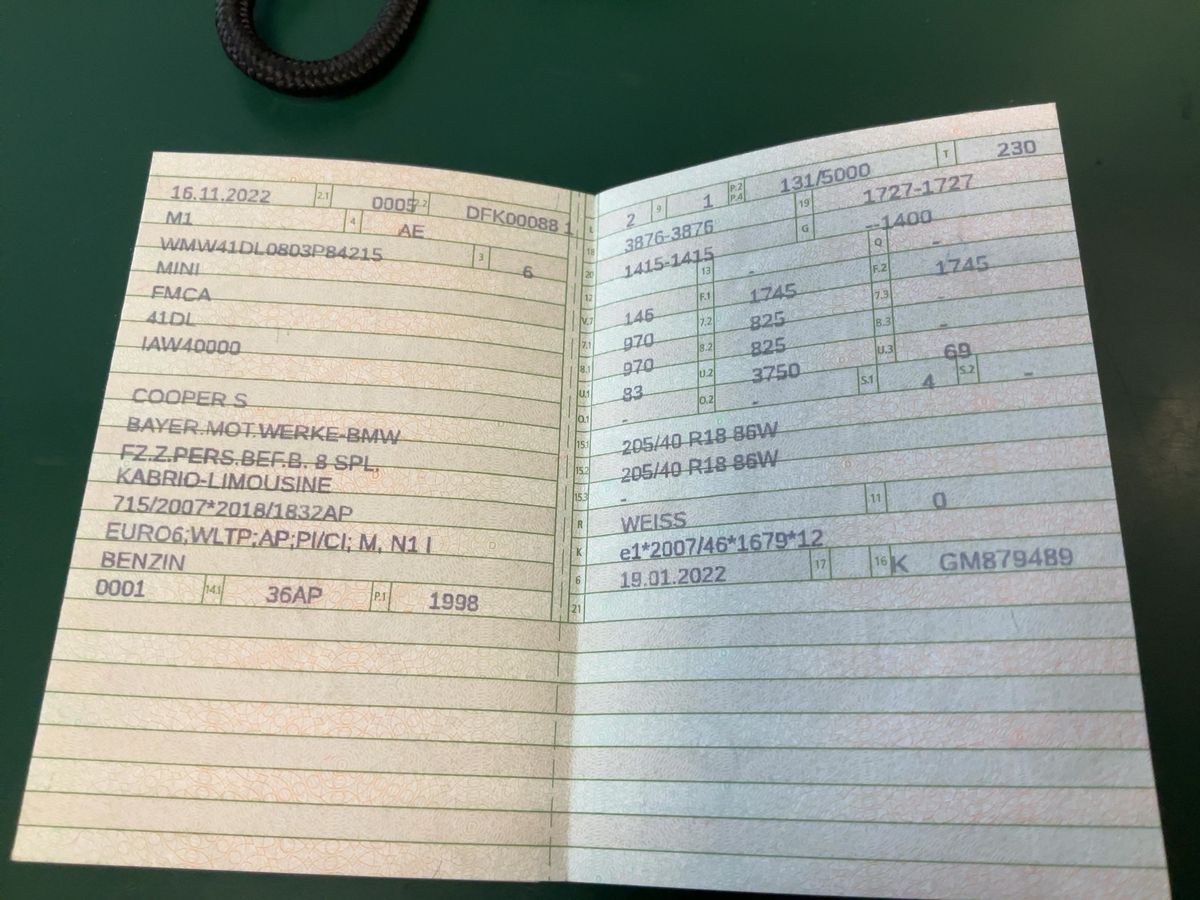 16.11.2022 2.1 0005 2.2 DFK00088 1
M1 4 AE
WMW41DL0803P84215 3 6
MINI
FMCA
41DL
IAW40000
COOPER S
BAYER.MOT.WERKE-BMW
FZ.Z.PERS.BEF.B. 8 SPL.
KABRIO-LIMOUSINE
715/2007*2018/1832AP
EURO6;WLTP;AP;PI/CI; M, N1 I
BENZIN
0001 14.1 36AP P.1 1998
L 2 9 1 P.2 P.4 131/5000 T 230
18 3876-3876 19 1727-1727
20 1415-1415 G --1400
12 - 13 - Q -
V.7 146 F.1 1745 F.2 1745
7.1 970 7.2 825 7.3 -
8.1 970 8.2 825 8.3 -
U.1 83 U.2 3750 U.3 69
O.1 - O.2 - S.1 4 S.2 -
15.1 205/40 R18 86W
15.2 205/40 R18 86W
15.3 -
R WEISS 11 0
K e1*2007/46*1679*12
6 19.01.2022 17 16 K GM879489
21